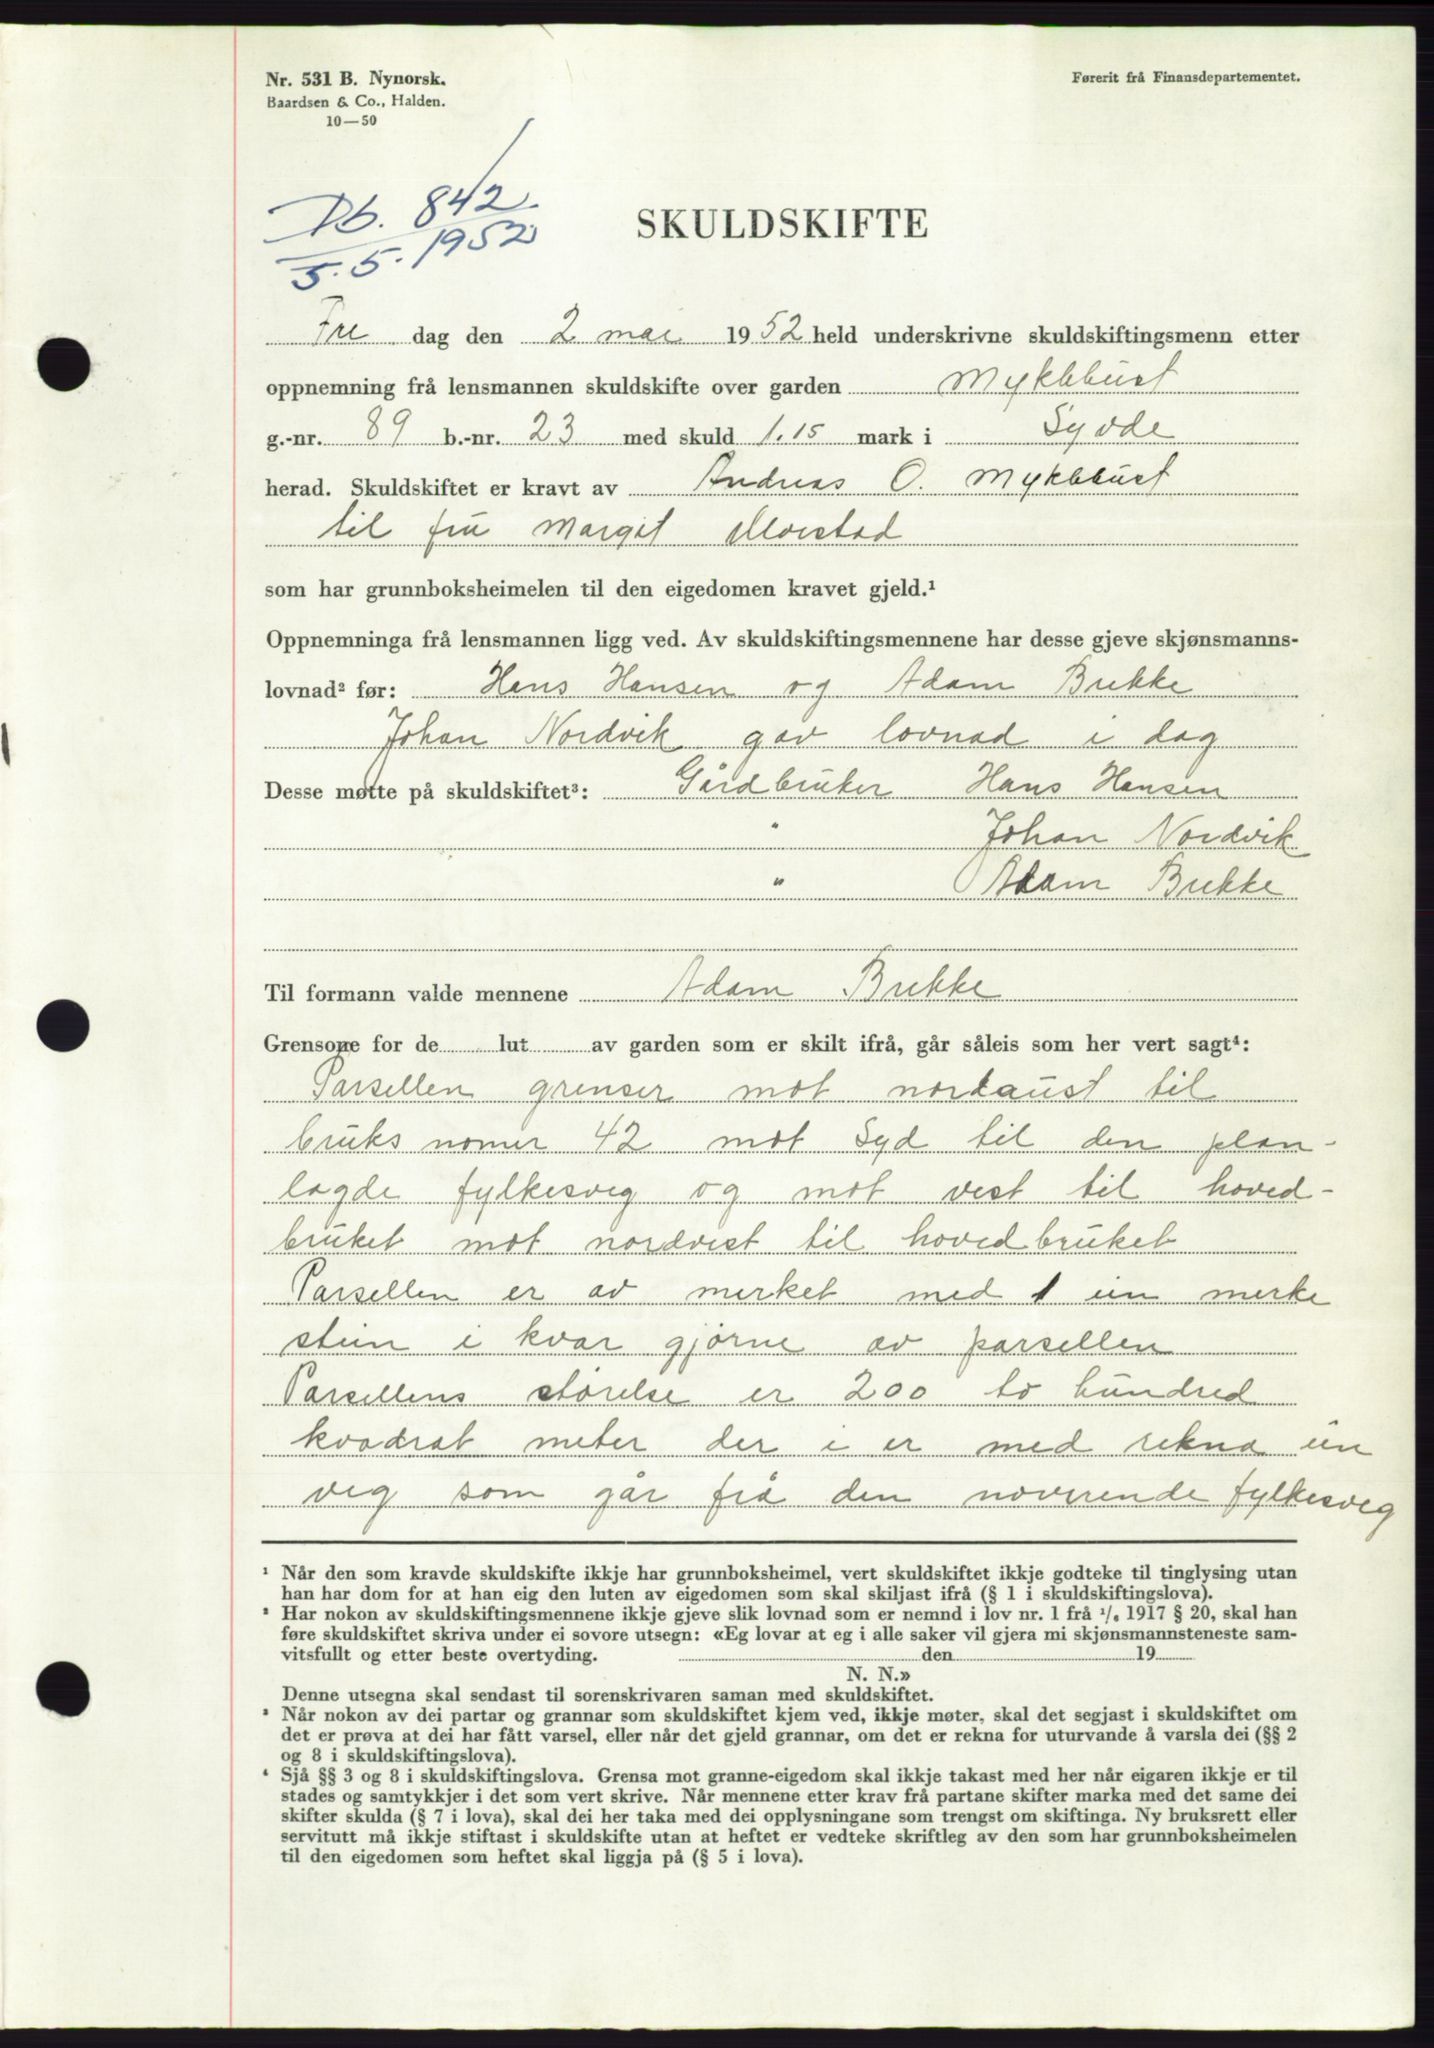 Nr. 531 B. Nynorsk.
Baardsen & Co., Halden.
10—50
Førerit frå Finansdepartementet.
Db. 842
5.5.1952
SKULDSKIFTE
Fre dag den 2 mai 1952 held underskrivne skuldskiftingsmenn etter
oppnemning frå lensmannen skuldskifte over garden Myklbust
g.-nr. 89 b.-nr. 23 med skuld 1.15 mark i Syvde
herad. Skuldskiftet er kravt av Andreas O. Myklbust
til fru Margit
som har grunnboksheimelen til den eigedomen kravet gjeld.¹
Oppnemninga frå lensmannen ligg ved. Av skuldskiftingsmennene har desse gjeve skjønsmanns-
lovnad² før: Hans Hansen og Adam Brekke
Johan Nordvik gav lovnad i dag
Desse møtte på skuldskiftet³: Gårdbruker Hans Hansen
" Johan Nordvik
" Adam Brekke
Til formann valde mennene Adam Brekke
Grensone for de lut av garden som er skilt ifrå, går såleis som her vert sagt⁴:
Parsellen grenser mot nordaust til
bruks nomer 42 mot Syd til den plan-
lagde fylkesveg og mot vest til hoved-
bruket mot nordvest til hovedbruket
Parsellen er av merket med 1 ein merke
stein i kvar gjørne av parsellen
Parsellens størelse er 200 to hundred
kvadrat meter der i er med rekna ein
veg som går frå den noverende fylkesveg
¹ Når den som kravde skuldskifte ikkje har grunnboksheimel, vert skuldskiftet ikkje godteke til tinglysing utan
han har dom for at han eig den luten av eigedomen som skal skiljast ifrå (§ 1 i skuldskiftingslova).
² Har nokon av skuldskiftingsmennene ikkje gjeve slik lovnad som er nemnd i lov nr. 1 frå ¹/₆ 1917 § 20, skal han
føre skuldskiftet skriva under ei sovore utsegn: «Eg lovar at eg i alle saker vil gjera mi skjønsmannsteneste sam-
vitsfullt og etter beste overtyding. den 19
N. N.»
Denne utsegna skal sendast til sorenskrivaren saman med skuldskiftet.
³ Når nokon av dei partar og grannar som skuldskiftet kjem ved, ikkje møter, skal det segjast i skuldskiftet om
det er prøva at dei har fått varsel, eller når det gjeld grannar, om det er rekna for uturvande å varsla dei (§§ 2
og 8 i skuldskiftingslova).
⁴ Sjå §§ 3 og 8 i skuldskiftingslova. Grensa mot granne-eigedom skal ikkje takast med her når eigaren ikkje er til
stades og samtykkjer i det som vert skrive. Når mennene etter krav frå partane skifter marka med det same dei
skifter skulda (§ 7 i lova), skal dei her taka med dei opplysningane som trengst om skiftinga. Ny bruksrett eller
servitutt må ikkje stiftast i skuldskifte utan at heftet er vedteke skriftleg av den som har grunnboksheimelen
til den eigedomen som heftet skal liggja på (§ 5 i lova).